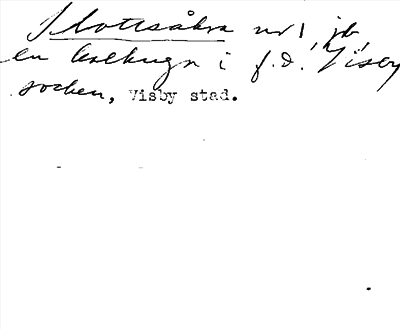 Slottsåkra nr 1, jb
en kalkugn i f.d. Visby
socken, Visby stad.